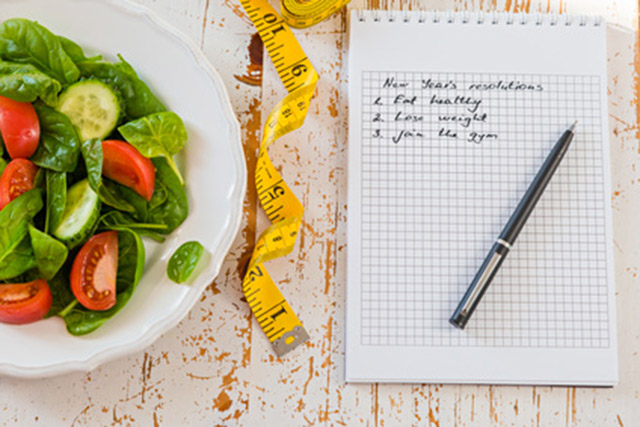 New Year's resolutions
1. Eat healthy
2. Lose weight
3. join the gym
10
9
5
2
1